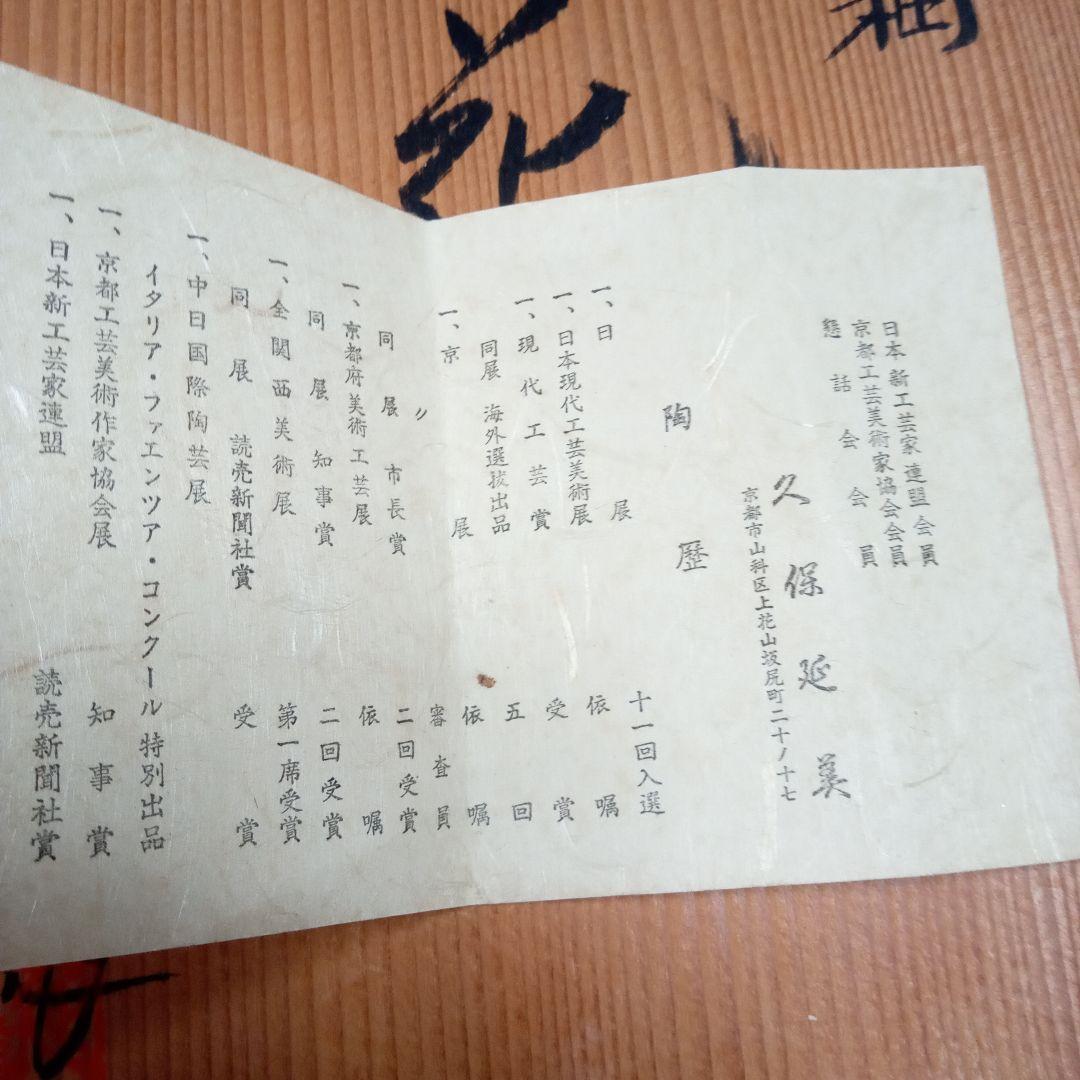 日本新工芸家連盟会員
京都工芸美術家協会会員
懇話会会員
久保延美
京都市山科区上花山坂尻町二十ノ十七
陶歴
一、日展 十一回入選
一、日本現代工芸美術展 依嘱
一、現代工芸賞 受賞
同展 海外選抜出品 五回
一、京展 依嘱
〃 審査員
同展市長賞 二回受賞
一、京都府美術工芸展 依嘱
同展知事賞 二回受賞
一、全関西美術展 第一席受賞
同展 読売新聞社賞 受賞
一、中日国際陶芸展
イタリア・ファエンツア・コンクール特別出品
一、京都工芸美術作家協会展 知事賞
一、日本新工芸家連盟 読売新聞社賞
花